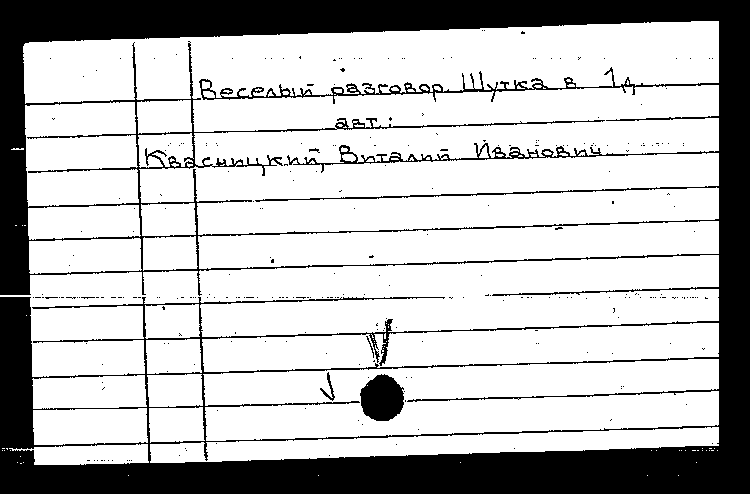 Веселый разговор. Шутка в 1д.
авт.:
Квасницкий, Виталий Иванович